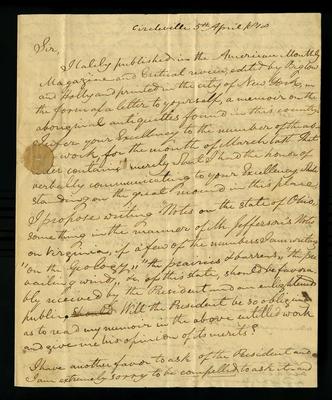 Circleville 5th April 1818
Sir,
I lately published in the American Monthly
Magazine and Critical review, edited by Biglow
and Holly and printed in the city of New York, in
the form of a letter to yourself, a memoir on the
aboriginal antiquities found in this country.
I refer your Excellency to the number of that
work, for the month of March last. That
letter contains merely what I had the honor of
verbally communicating to your Excellency, while
standing on the great mound in this place.
I propose writing Notes on the state of Ohio,
something in the manner of Mr Jefferson's Notes
on Virginia, if a few of the numbers I am writing
"on the Geology," "the prairies & barrens," "the pre
vailing winds," &c of this state, should be favora
bly received by the President and an enlightened
public. Will the President be so obliging
as to read my memoir in the above entitled work
and give me his opinion of its merits?
I have another favor to ask of the President and
I am extremely sorry to be compelled to ask it and